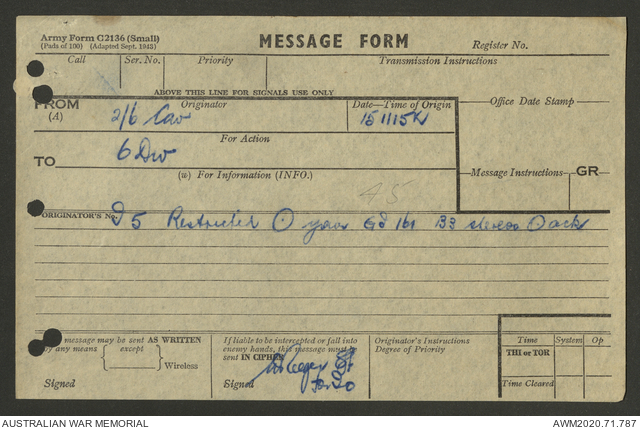 Army Form C2136 (Small)
(Pads of 100) (Adapted Sept. 1943)
MESSAGE FORM
Register No.
Call Ser. No. Priority Transmission Instructions
ABOVE THIS LINE FOR SIGNALS USE ONLY
FROM Originator Date—Time of Origin Office Date Stamp
(A) 2/6 Cav 151115K
For Action
TO 6 Div
(W) For Information (INFO.) Message Instructions GR
45
ORIGINATOR'S No. I 5 Restricted O your GI 161 O ack
message may be sent AS WRITTEN
by any means except
Wireless
Signed
If liable to be intercepted or fall into
enemy hands, this message must be
sent IN CIPHER
Signed Lt
for IO
Originator's Instructions
Degree of Priority
Time System Op
THI or TOR
Time Cleared
AUSTRALIAN WAR MEMORIAL AWM2020.71.787